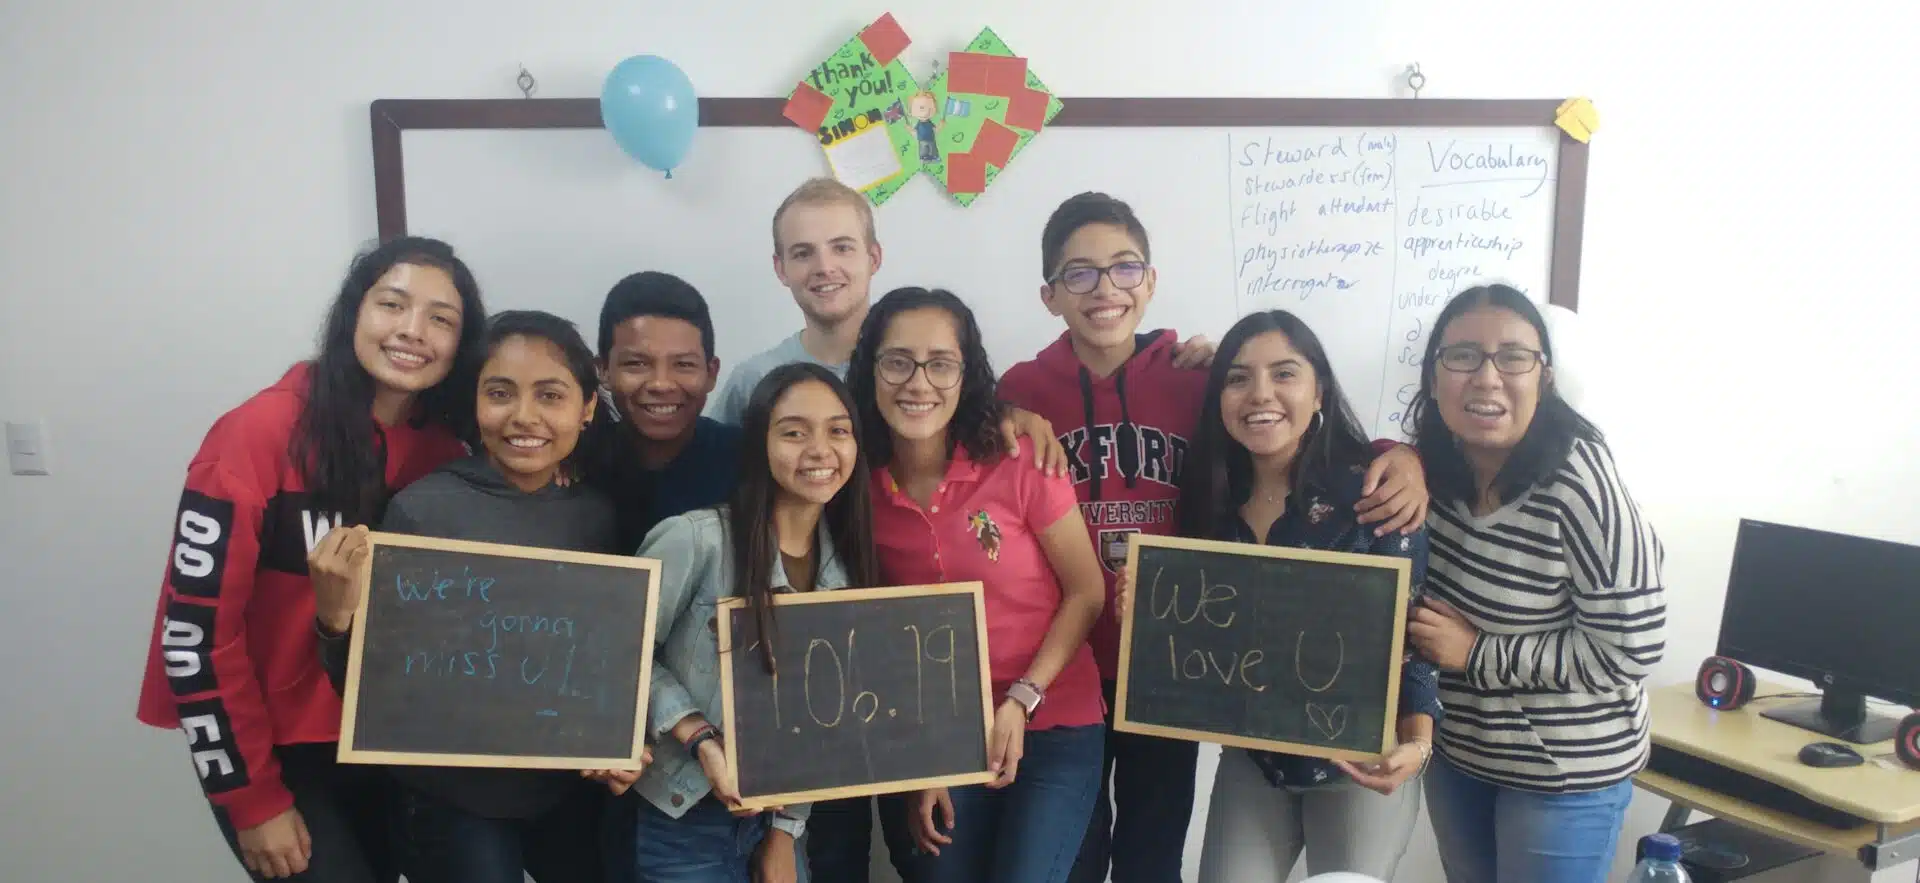 thank
you!
SIMON
Steward (male)
Stewardess (fem)
Flight attendant
physiotherapist
interrogate
Vocabulary
desirable
apprenticeship
degree
under
OXFORD
UNIVERSITY
We're
gonna
miss u!
1.06.19
We
love U